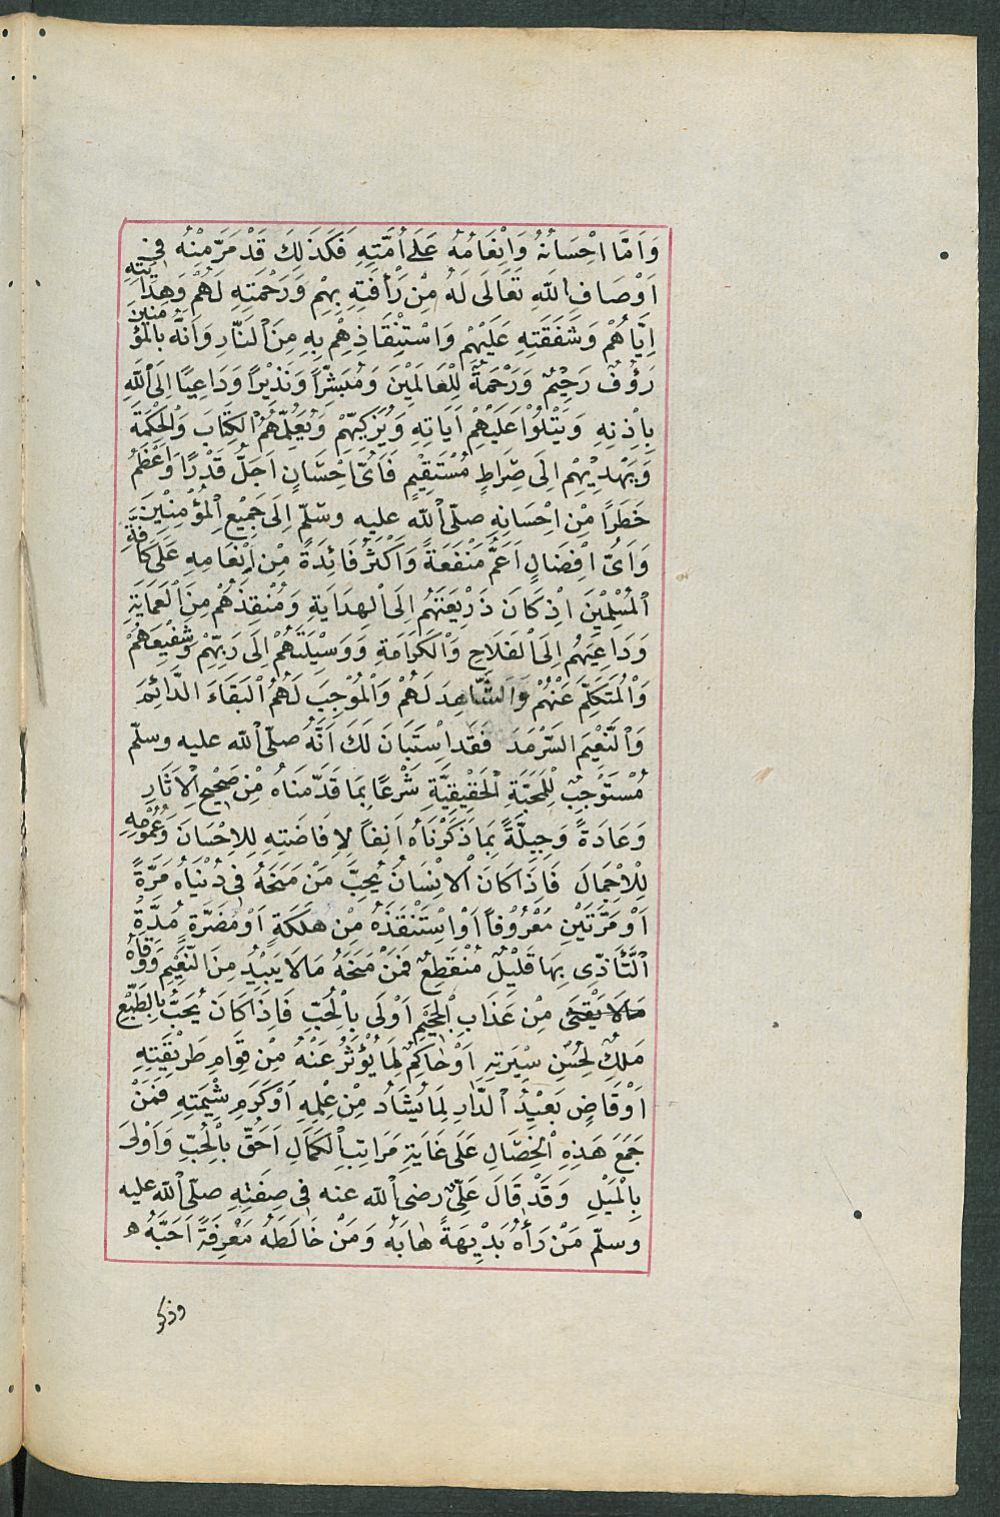 وَاَمَّا اِحْسَانُهُ وَاِنْعَامُهُ عَلَى اُمَّتِهِ فَكَذَلِكَ قَدْ مَرَّ مِنْهُ فِي
اَوْصَافِ اللّٰهِ تَعَالَى لَهُ مِنْ رَأْفَتِهِ بِهِمْ وَرَحْمَتِهِ لَهُمْ وَهِدَايَتِهِ
اِيَّاهُمْ وَشَفَقَتِهِ عَلَيْهِمْ وَاسْتِنْقَاذِهِمْ بِهِ مِنَ النَّارِ وَاَنَّهُ بِالْمُؤْمِنِينَ
رَؤُفٌ رَحِيْمٌ وَرَحْمَةً لِلْعَالَمِيْنَ وَمُبَشِّرًا وَنَذِيْرًا وَدَاعِيًا اِلَى اللّٰهِ
بِاِذْنِهِ وَيَتْلُوْا عَلَيْهِمْ اَيَاتِهِ وَيُزَكِّيْهِمْ وَيُعَلِّمُهُمُ الْكِتَابَ وَالْحِكْمَةَ
وَيَهْدِيْهِمْ اِلَى صِرَاطٍ مُسْتَقِيْمٍ فَاَىُّ اِحْسَانٍ اَجَلُّ قَدْرًا وَاَعْظَمُ
خَطَرًا مِنْ اِحْسَانِهِ صلّى اللّٰه عليه وسلّم اِلَى جَمِيْعِ الْمُؤْمِنِيْنَ
وَاَىُّ اِفْضَالٍ اَعَمُّ مَنْفَعَةً وَاَكْثَرُ فَائِدَةً مِنْ اِنْعَامِهِ عَلَى كَافَّةِ
الْمُسْلِمِيْنَ اِذْ كَانَ ذَرِيْعَتَهُمْ اِلَى الْهِدَايَةِ وَمُنْقِذَهُمْ مِنَ الْعَمَايَةِ
وَدَاعِيَهُمْ اِلَى الْفَلَاحِ وَالْكَرَامَةِ وَوَسِيْلَتَهُمْ اِلَى رَبِّهِمْ وَشَفِيْعَهُمْ
وَالْمُتَكَلِّمَ عَنْهُمْ وَالشَّاهِدَ لَهُمْ وَالْمُوْجِبَ لَهُمُ الْبَقَاءَ الدَّائِمَ
وَالنَّعِيْمَ السَّرْمَدَ فَقَدِ اسْتَبَانَ لَكَ اَنَّهُ صلّى اللّٰه عليه وسلّم
مُسْتَوْجِبٌ لِلْمَحَبَّةِ الْحَقِيْقِيَّةِ شَرْعًا بِمَا قَدَّمْنَاهُ مِنْ صَحِيْحِ الْاَثَارِ
وَعَادَةً وَجِبِلَّةً بِمَا ذَكَرْنَاهُ اَنِفًا لِاِفَاضَتِهِ لِلْاِحْسَانَ وَعُمُوْمِهِ
لِلْاِجْمَالَ فَاِذَا كَانَ الْاِنْسَانُ يُحِبُّ مَنْ مَنَحَهُ فِى دُنْيَاهُ مَرَّةً
اَوْ مَرَّتَيْنِ مَعْرُوْفًا اَوْ اِسْتَنْقَذَهُ مِنْ هَلَكَةٍ اَوْ مَضَرَّةٍ مُدَّةُ
التَّأَذِّى بِهَا قَلِيْلٌ مُنْقَطِعٌ فَمَنْ مَنَحَهُ مَالَا يَبِيْدُ مِنَ النَّعِيْمِ وَوَقَاهُ
مَالَا يَفْنَى مِنْ عَذَابِ الْجَحِيْمِ اَوْلَى بِالْحُبِّ فَاِذَا كَانَ يُحَبُّ بِالطَّبْعِ
مَلِكٌ لِحُسْنِ سِيْرَتِهِ اَوْ حَاكِمٌ لِمَا يُؤْثَرُ عَنْهُ مِنْ قِوَامِ طَرِيْقَتِهِ
اَوْ قَاضٍ بَعِيْدُ الدَّارِ لِمَا يُشَادُ مِنْ عِلْمِهِ اَوْ كَرَمِ شِيْمَتِهِ فَمَنْ
جَمَعَ هَذِهِ الْخِصَالِ عَلَى غَايَةِ مَرَاتِبِ الْكَمَالِ اَحَقُّ بِالْحُبِّ وَاَوْلَى
بِالْمَيْلِ وَقَدْ قَالَ عَلِىٌّ رضى اللّٰه عنه فِى صِفَتِهِ صلّى اللّٰه عليه
وسلّم مَنْ رَأٰهُ بَدِيْهَةً هَابَهُ وَمَنْ خَالَطَهُ مَعْرِفَةً اَحَبَّهُ ه
وذكر